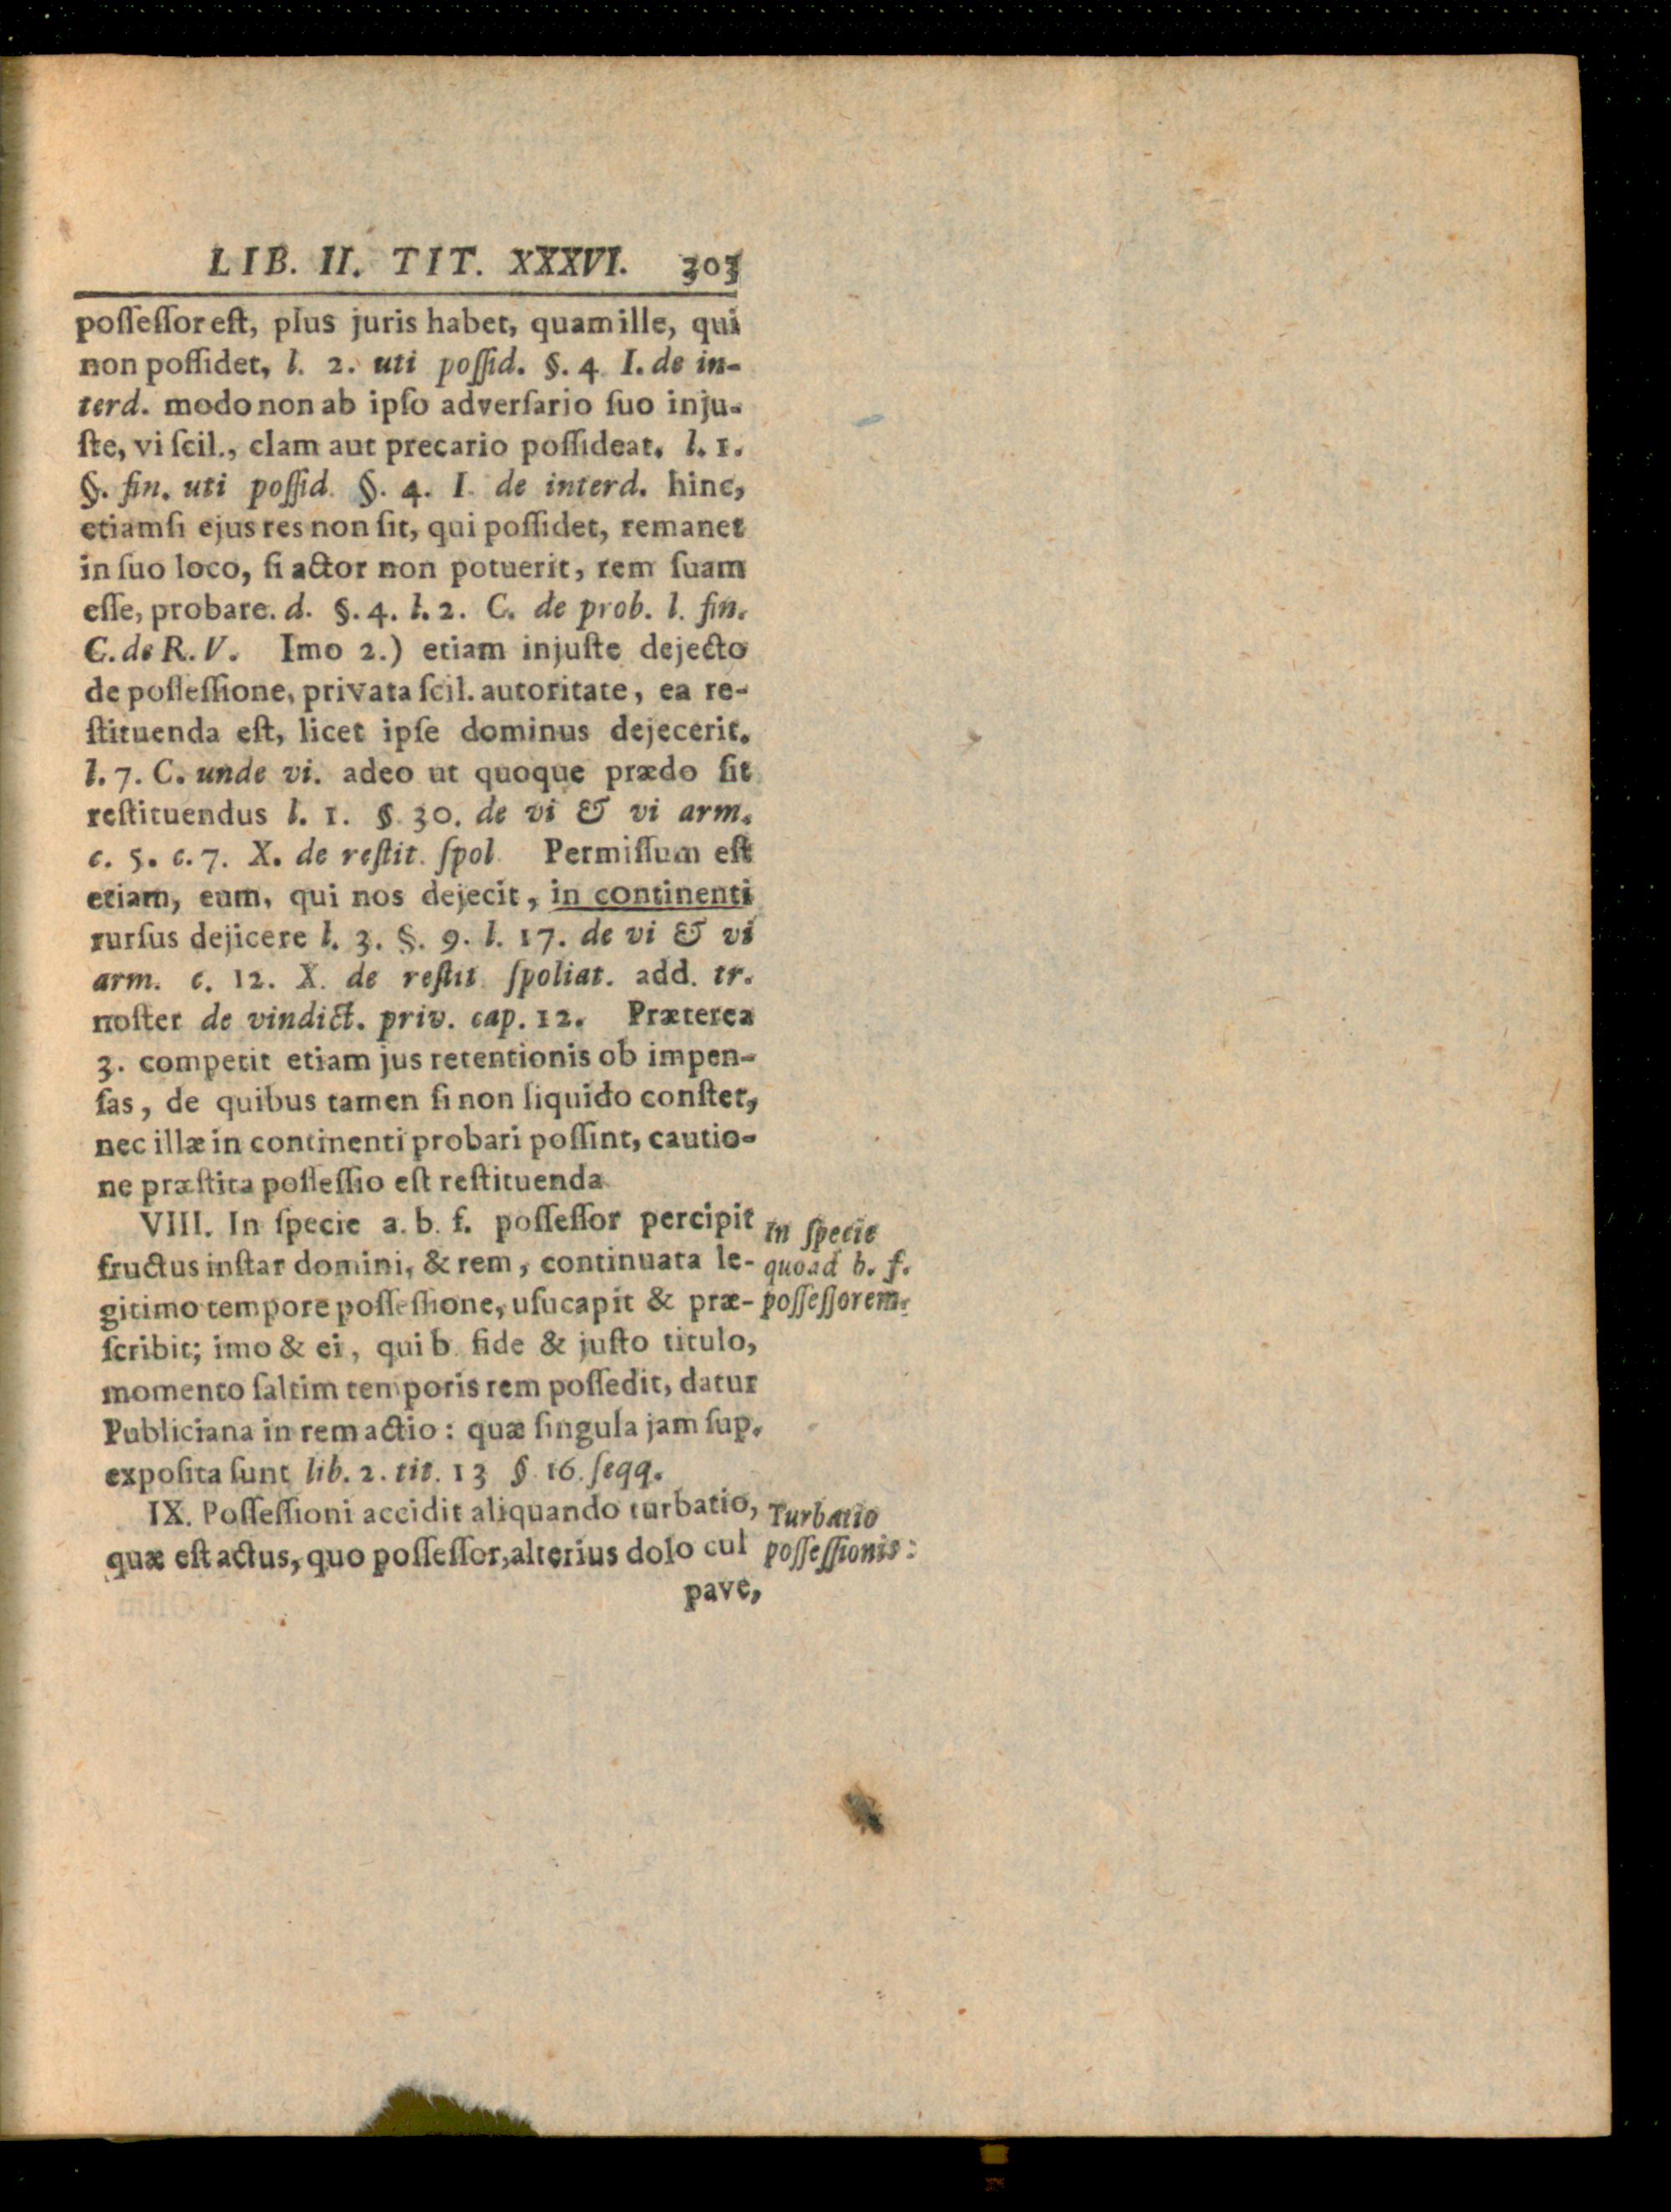 LIB. II. TIT. XXXVI. 303
poſſeſſor eſt, plus juris habet, quam ille, qui
non poſſidet, l. 2. uti poſſid. §. 4 I. de in-
terd. modo non ab ipſo adverſario ſuo inju-
ſte, vi ſcil., clam aut precario poſſideat. l. 1.
§. fin. uti poſſid. §. 4. I. de interd. hinc,
etiamſi ejus res non ſit, qui poſſidet, remanet
in ſuo loco, ſi actor non potuerit, rem ſuam
eſſe, probare. d. §. 4. l. 2. C. de prob. l. fin.
C. de R. V. Imo 2.) etiam injuſte dejecto
de poſſeſſione, privata ſcil. autoritate, ea re-
ſtituenda eſt, licet ipſe dominus dejecerit.
l. 7. C. unde vi. adeo ut quoque prædo ſit
reſtituendus l. 1. §. 30. de vi & vi arm.
c. 5. c. 7. X. de reſtit. ſpol. Permiſſum eſt
etiam, eum, qui nos dejecit, in continenti
rurſus dejicere l. 3. §. 9. l. 17. de vi & vi
arm. c. 12. X. de reſtit. ſpoliat. add. tr.
noſter de vindict. priv. cap. 12. Præterea
3. competit etiam jus retentionis ob impen-
ſas, de quibus tamen ſi non liquido conſtet,
nec illæ in continenti probari poſſint, cautio-
ne præſtita poſſeſſio eſt reſtituenda
VIII. In ſpecie a. b. f. poſſeſſor percipit
fructus inſtar domini, & rem, continuata le-
gitimo tempore poſſeſſione, uſucapit & præ-
ſcribit; imo & ei, qui b. fide & juſto titulo,
momento ſaltim temporis rem poſſedit, datur
Publiciana in rem actio: quæ ſingula jam ſup.
expoſita ſunt lib. 2. tit. 13 §. 16. ſeqq.
In ſpecie
quoad b. f.
poſſeſſorem.
IX. Poſſeſſioni accidit aliquando turbatio,
quæ eſt actus, quo poſſeſſor, alterius dolo cul
Turbatio
poſſeſſionis:
pave,